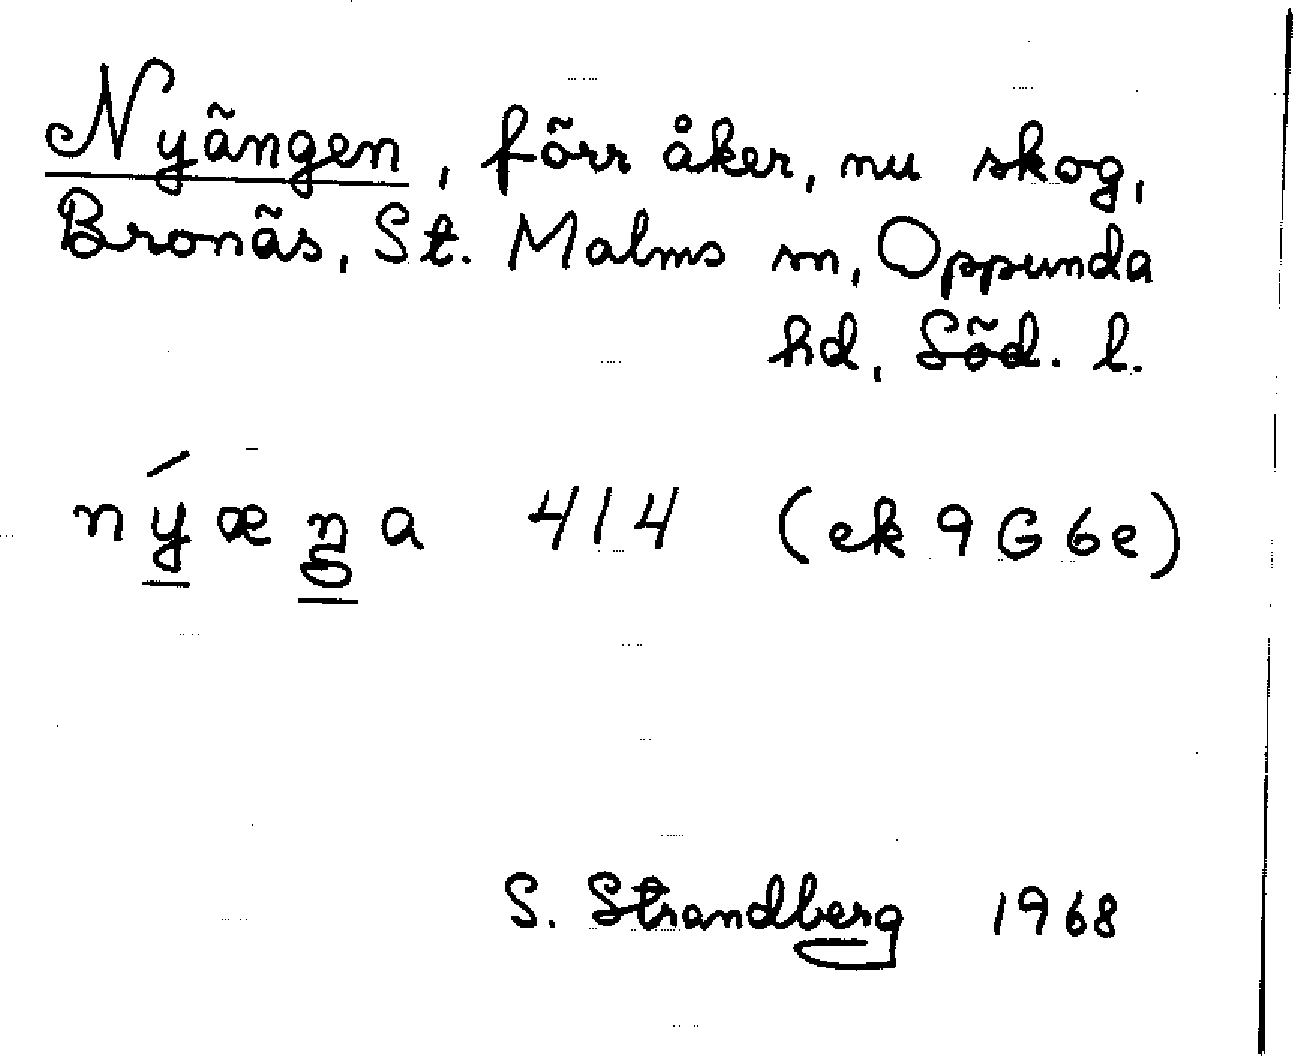 Nyängen, förr åker, nu skog,
Bronäs, St. Malms sn, Oppunda
hd, Söd. l.
nýæŋa 414 (ek 9G6e)
S. Strandberg 1968